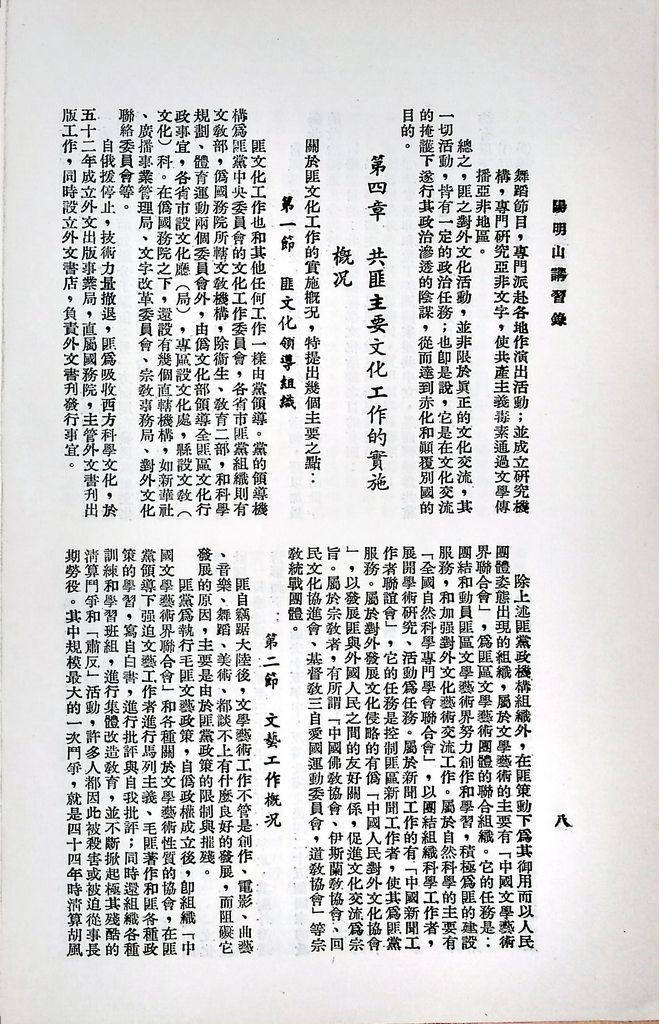 陽明山講習錄
八
舞蹈節目，專門派赴各地作演出活動；並成立研究機
構，專門研究亞非文字，使共產主義毒素通過文學傳
播亞非地區。
總之，匪之對外文化活動，並非限於眞正的文化交流，其
一切活動，皆有一定的政治任務；也卽是說，它是在文化交流
的掩護下遂行其政治滲透的陰謀，從而達到赤化和顚覆別國的
目的。
第四章　共匪主要文化工作的實施
概況
關於匪文化工作的實施概況，特提出幾個主要之點：
第一節　匪文化領導組織
匪文化工作也和其他任何工作一樣由黨領導。黨的領導機
構爲匪黨中央委員會的文化工作委員會，各省市匪黨組織則有
文敎部，僞國務院所轄文敎機構，除衞生、敎育二部，和科學
規劃、體育運動兩個委員會外，由僞文化部領導全匪區文化行
政事宜，各省市設文化廳（局），專區設文化處，縣設文敎（
文化）科。在僞國務院之下，還設有幾個直轄機構，如新華社
、廣播事業管理局、文字改革委員會、宗敎事務局、對外文化
聯絡委員會等。
自俄援停止，技術力量撤退，匪爲吸收西方科學文化，於
五十二年成立外文出版事業局，直屬國務院，主管外文書刊出
版工作，同時設立外文書店，負責外文書刊發行事宜。
除上述匪黨政機構組織外，在匪策動下爲其御用而以人民
團體姿態出現的組織，屬於文學藝術的主要有「中國文學藝術
界聯合會」，爲匪區文學藝術團體的聯合組織。它的任務是：
團結和動員匪區文學藝術界努力創作和學習，積極爲匪的建設
服務，和加强對外文化藝術交流工作。屬於自然科學的主要有
「全國自然科學專門學會聯合會」，以團結組織科學工作者，
展開學術研究、活動爲任務。屬於新聞工作的有「中國新聞工
作者聯誼會」，它的任務是控制匪區新聞工作者，使其爲匪黨
服務。屬於對外發展文化侵略的有僞「中國人民對外文化協會
」，以發展匪與外國人民之間的友好關係，促進文化交流爲宗
旨。屬於宗敎者，有所謂「中國佛敎協會、伊斯蘭敎協會、回
民文化協進會、基督敎三自愛國運動委員會，道敎協會」等宗
敎統戰團體。
第二節　文藝工作概況
匪自竊踞大陸後，文學藝術工作不管是創作、電影、曲藝
、音樂、舞蹈、美術、都談不上有什麽良好的發展，而阻礙它
發展的原因，主要是由於匪黨政策的限制與摧殘。
匪黨爲執行毛匪文藝政策，自僞政權成立後，卽組織「中
國文學藝術界聯合會」和各種關於文學藝術性質的協會，在匪
黨領導下强迫文藝工作者進行馬列主義、毛匪著作和匪各種政
策的學習，寫自白書，進行批評與自我批評；同時還組織各種
訓練和學習班組，進行集體改造敎育，並不斷掀起極其殘酷的
淸算鬥爭和「肅反」活動，許多人都因此被殺害或被迫從事長
期勞役。其中規模最大的一次鬥爭，就是四十四年時淸算胡風